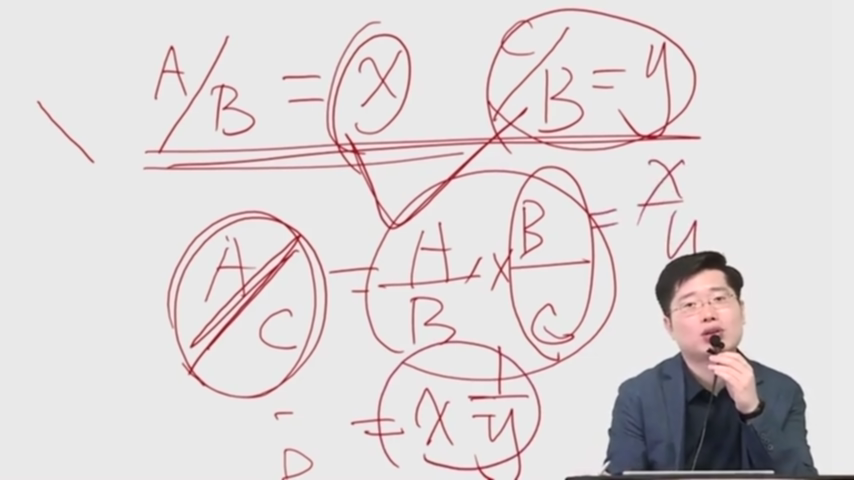 A/B = x  C/B = y
A/C = A/B × B/C = x/y
= x 1/y
D